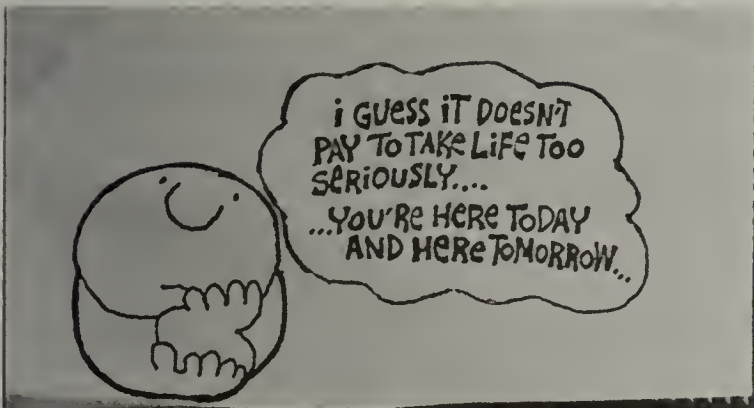 i GUESS iT DOESN'T
PAY TO TAKE LiFE TOO
SERiOUSLY....
...YOU'RE HERE TODAY
AND HERE TOMORROW...